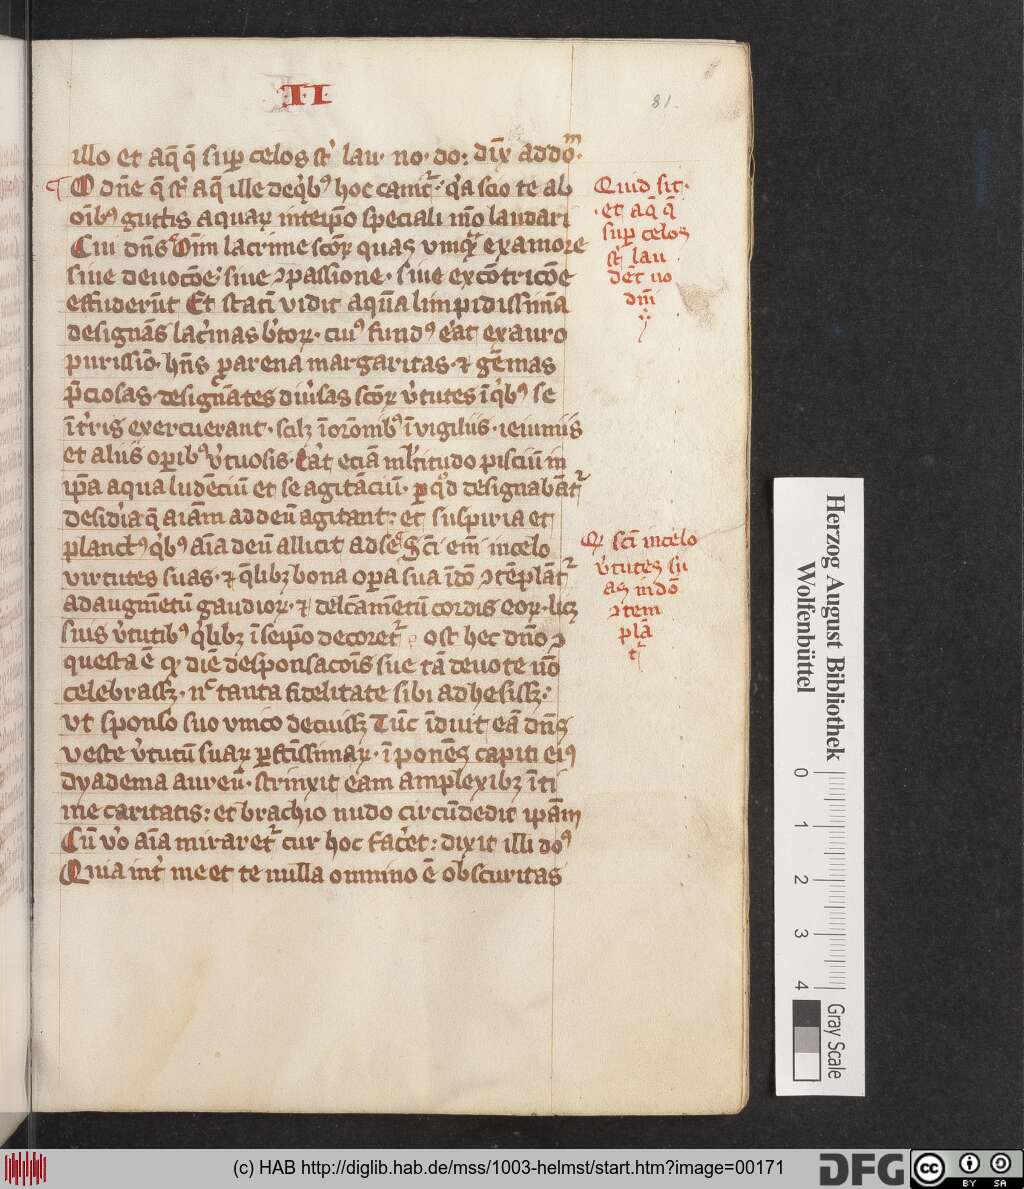 II
81
illo et aq̄ q̄ sup celos st̄ lau· no· do: dix̄ ad dom̄·
O dn̄e q̄ st̄ aq̄ ille de qͥbꝰ hoc canit᷑· qͥa scio te ab
oīb᷒ guttis aquaꝝ in te ip̄o speciali mō laudari
Cui dn̄s Om̄s lacrime scōꝝ quas vmqͣ ex amore
siue deuocōe· siue ↄpassione· siue ex cōtricōe
effuderūt Et statī vidit aquā limpidissimā
designās lacͥmas bͨtoꝝ· cuiꝰ fundꝰ eͣat ex auro
purissīo· hn̄s ꝑ arena margaritas· ⁊ gēmas
p̄ciosas· designātes diuͥsas scōꝝ vͥtutes ī qͥbꝰ se
ī tͥris exercuerant· scilꝫ ī orōnibꝰ ī vigiliis· ieiuniis
et aliis oꝑibꝰ vͥtuosis· Eͣat eciā ml̄titudo pisciū in
ip̄a aqua ludēciū et se agitāciū· ꝑ qͦd designabāt᷑
desidͥia q̄ aīam ad deū agitant: et suspiria et
planctꝰ qͥbꝰ aīa deū allicit ad se· Scī em̄ in celo
virtutes suas· ⁊ qͣlibꝫ bona oꝑa sua ī dō ↄtēplāt᷑
ad augmētū gaudioꝝ· ⁊ delcāmētū cordis eoꝝ· licꝫ
suis vͥtutibꝰ qͥlibꝫ ī seip̄o decoret᷑ ost hec dn̄o ↄ
questa ē ꝙ diē desponsacōis sue tā deuote nō
celebrassꝫ· nͨ tanta fidelitate sibi adhesissꝫ:
vt sponso suo vnico decuissꝫ Tūc īduit eā dn̄s
veste vͥtutū suaꝝ ꝑfctīssimaꝝ· ī ponēs capiti eiꝰ
dyadema aureū· strinxit eam amplexibꝫ īti
me caritatis: et brachio nudo circūdedit ip̄am
Cū vͦo aīa miraret᷑ cur hoc facͥet: dixit illi doꝰ
Quia intͥ me et te nulla omnino ē obscuritas
Quid sit·
·et aq̄ q̄
sup celos
st̄ lau
dēt no
dm̄i
Ꝙ scī in celo
vͥtutes su
as in dō
ↄtem
plā
t᷑
Herzog August Bibliothek
Wolfenbüttel
0 1 2 3 4
Gray Scale
(c) HAB http://diglib.hab.de/mss/1003-helmst/start.htm?image=00171
DFG
cc BY SA